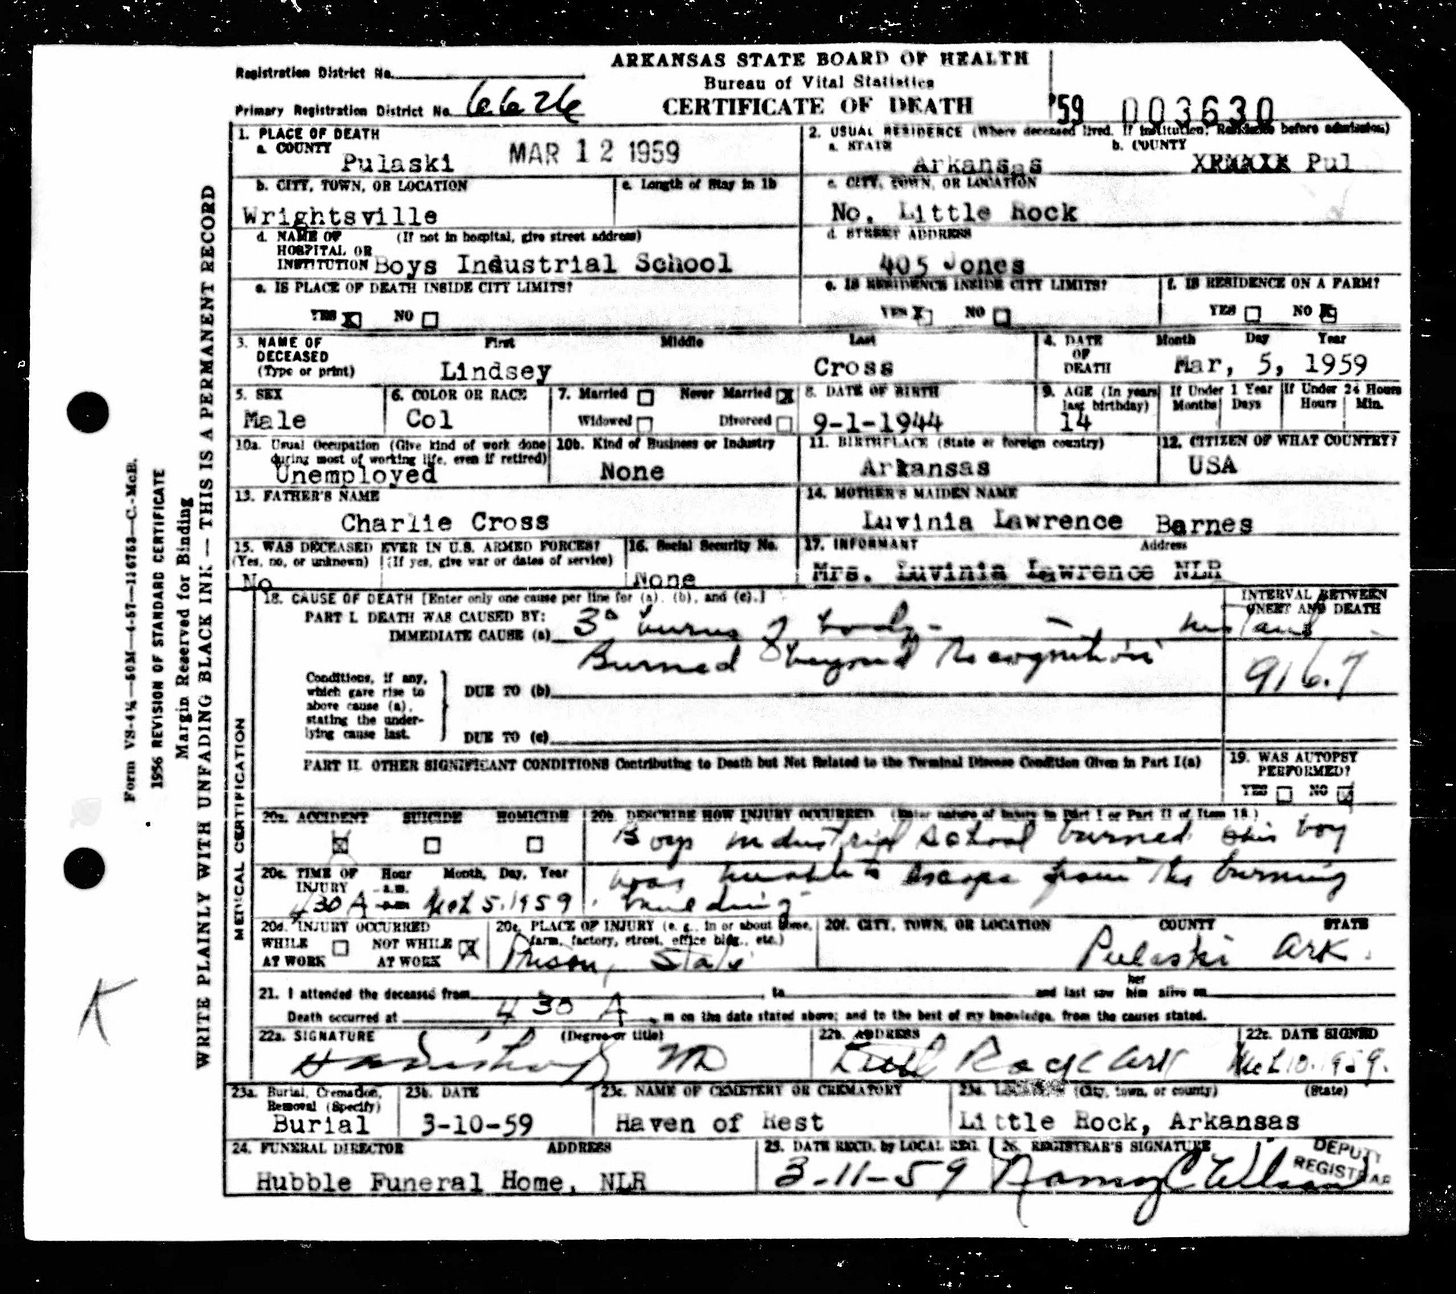 ARKANSAS STATE BOARD OF HEALTH
Bureau of Vital Statistics
CERTIFICATE OF DEATH
Registration District No.
Primary Registration District No. 6626
'59 003630
1. PLACE OF DEATH
a. COUNTY
Pulaski
MAR 12 1959
2. USUAL RESIDENCE (Where deceased lived. If institution: Residence before admission)
a. STATE b. COUNTY
Arkansas Pul
b. CITY, TOWN, OR LOCATION c. Length of Stay in 1b
Wrightsville
c. CITY, TOWN, OR LOCATION
No. Little Rock
d. NAME OF HOSPITAL OR INSTITUTION (If not in hospital, give street address)
Boys Industrial School
d. STREET ADDRESS
405 Jones
e. IS PLACE OF DEATH INSIDE CITY LIMITS?
YES X NO
e. IS RESIDENCE INSIDE CITY LIMITS?
YES X NO
f. IS RESIDENCE ON A FARM?
YES NO X
3. NAME OF DECEASED (Type or print) First Middle Last
Lindsey Cross
4. DATE OF DEATH Month Day Year
Mar, 5, 1959
5. SEX
Male
6. COLOR OR RACE
Col
7. Married Never Married X
Widowed Divorced
8. DATE OF BIRTH
9-1-1944
9. AGE (In years last birthday)
14
If Under 1 Year Months Days
If Under 24 Hours Hours Min.
10a. Usual Occupation (Give kind of work done during most of working life, even if retired)
Unemployed
10b. Kind of Business or Industry
None
11. BIRTHPLACE (State or foreign country)
Arkansas
12. CITIZEN OF WHAT COUNTRY?
USA
13. FATHER'S NAME
Charlie Cross
14. MOTHER'S MAIDEN NAME
Luvinia Lawrence Barnes
15. WAS DECEASED EVER IN U.S. ARMED FORCES?
(Yes, no, or unknown) (If yes, give war or dates of service)
No
16. Social Security No.
None
17. INFORMANT Address
Mrs. Luvinia Lawrence NLR
18. CAUSE OF DEATH [Enter only one cause per line for (a), (b), and (c).]
INTERVAL BETWEEN ONSET AND DEATH
PART I. DEATH WAS CAUSED BY:
IMMEDIATE CAUSE (a) 3° burns of body - Instant
Burned beyond Recognition
916.7
Conditions, if any, which gave rise to above cause (a), stating the underlying cause last.
DUE TO (b)
DUE TO (c)
PART II. OTHER SIGNIFICANT CONDITIONS Contributing to Death but Not Related to the Terminal Disease Condition Given in Part I(a)
19. WAS AUTOPSY PERFORMED?
YES NO X
20a. ACCIDENT SUICIDE HOMICIDE
X
20b. DESCRIBE HOW INJURY OCCURRED. (Enter nature of injury in Part I or Part II of Item 18.)
Boys Industrial School burned this boy
was unable to escape from the burning
building
20c. TIME OF INJURY Hour a.m. Month, Day, Year
4 30 A Mch 5, 1959
20d. INJURY OCCURRED
WHILE AT WORK NOT WHILE AT WORK X
20e. PLACE OF INJURY (e. g., in or about home, farm, factory, street, office bldg., etc.)
Prison, State
20f. CITY, TOWN, OR LOCATION COUNTY STATE
Pulaski Ark.
21. I attended the deceased from to and last saw her him alive on
Death occurred at 4 30 A m on the date stated above; and to the best of my knowledge, from the causes stated.
22a. SIGNATURE (Degree or title)
MD
22b. ADDRESS
Little Rock Ark
22c. DATE SIGNED
Mch 10. 1959.
23a. Burial, Cremation, Removal (Specify)
Burial
23b. DATE
3-10-59
23c. NAME OF CEMETERY OR CREMATORY
Haven of Rest
23d. LOCATION (City, town, or county) (State)
Little Rock, Arkansas
24. FUNERAL DIRECTOR ADDRESS
Hubble Funeral Home, NLR
25. DATE RECD. by LOCAL REG.
3-11-59
26. REGISTRAR'S SIGNATURE
Nancy C Wilson
DEPUTY REGISTRAR
Form VS-4¼—50M—4-57—116753—C.-McB.
1956 REVISION OF STANDARD CERTIFICATE
Margin Reserved for Binding
WRITE PLAINLY WITH UNFADING BLACK INK — THIS IS A PERMANENT RECORD
MEDICAL CERTIFICATION
K